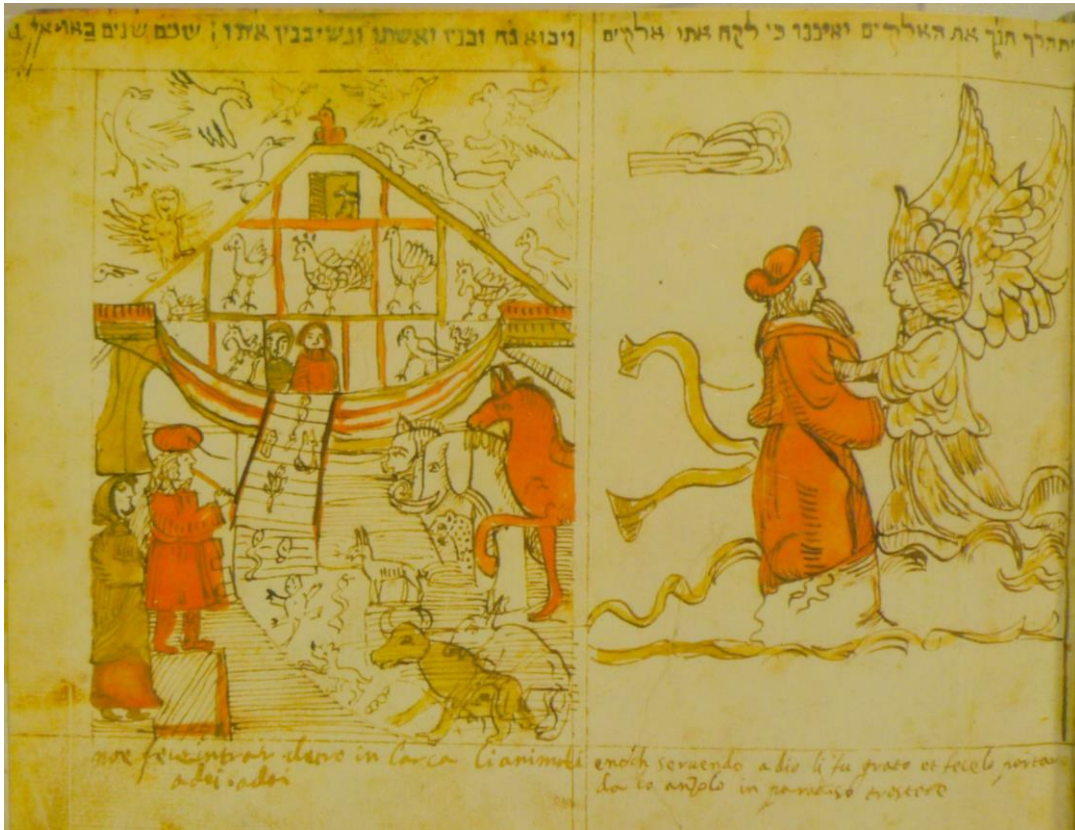 יתהלך חנך את האלקים ואיננו כי לקח אתו אלקים
ויבוא נח ובניו ואשתו ונשי בניו איתו : שנים שנים באו אל
enoch seruendo a dio li fu grato et fecelo portare
da lo anzolo in paradiso
noe fece intrar detro in larca li animali
a doi . a doi